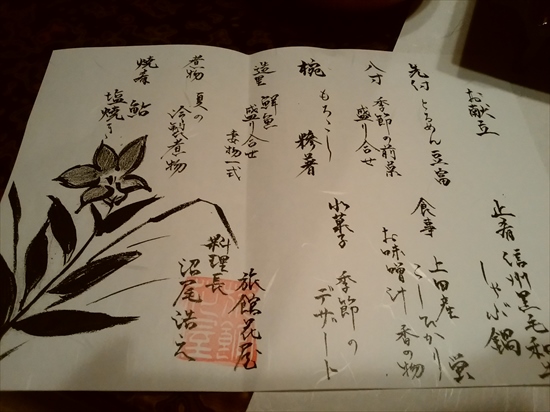 お献立
先付 とろめん豆富
八寸 季節の前菜
盛り合せ
椀 もろこし 糝薯
造里 鮮魚
盛り合せ
妻物一式
煮物 夏の
冷製煮物
焼肴 鮎
塩焼き
止肴 信州黒毛和
しゃぶ鍋
食事 上田産
こしひかり
お味噌汁 香の物
水菓子 季節の
デザート
旅館花屋
料理長
沼尾浩之